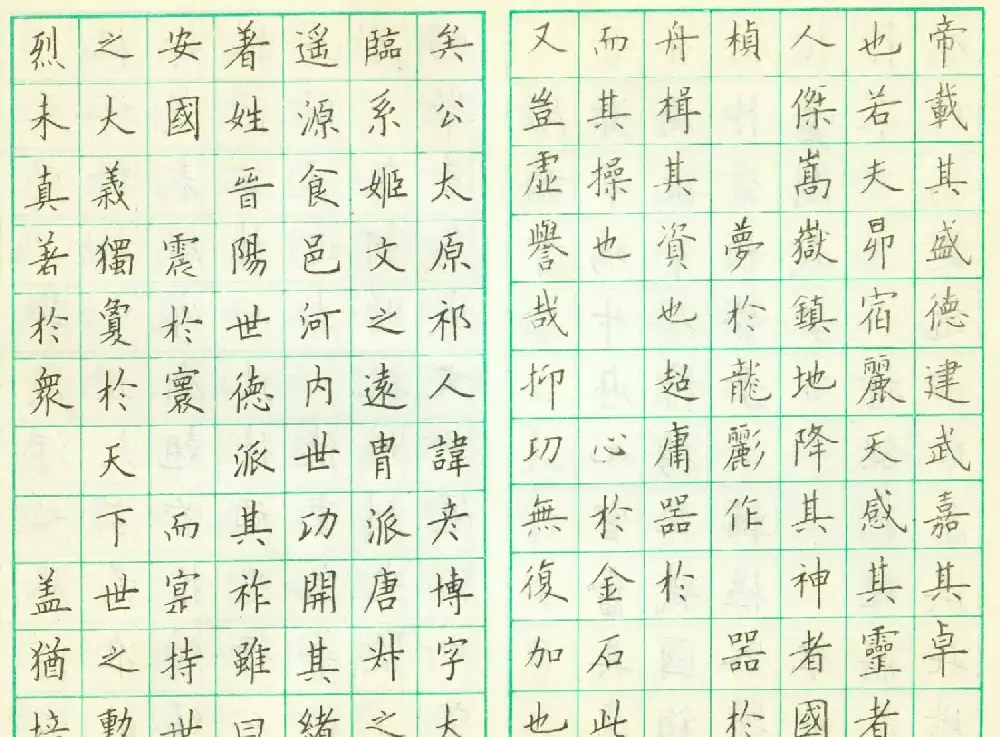 帝載其盛德建武嘉其卓
也若夫昴宿麗天感其靈者
人傑嵩嶽鎮地降其神者國
楨 夢於龍 作 器於
舟楫其資也超庸器於
而其操也 心於金石此
又豈虛譽哉抑功無復加也
矣公太原祁人諱彦博字大
臨系姬文之遠胄派唐叔之
遥源食邑河内世功開其緒
著姓晉陽世德派其祚雖曰
安國 震於寰 而 持世
之大義獨 於天下世之勳
烈未真著於衆 盖猶